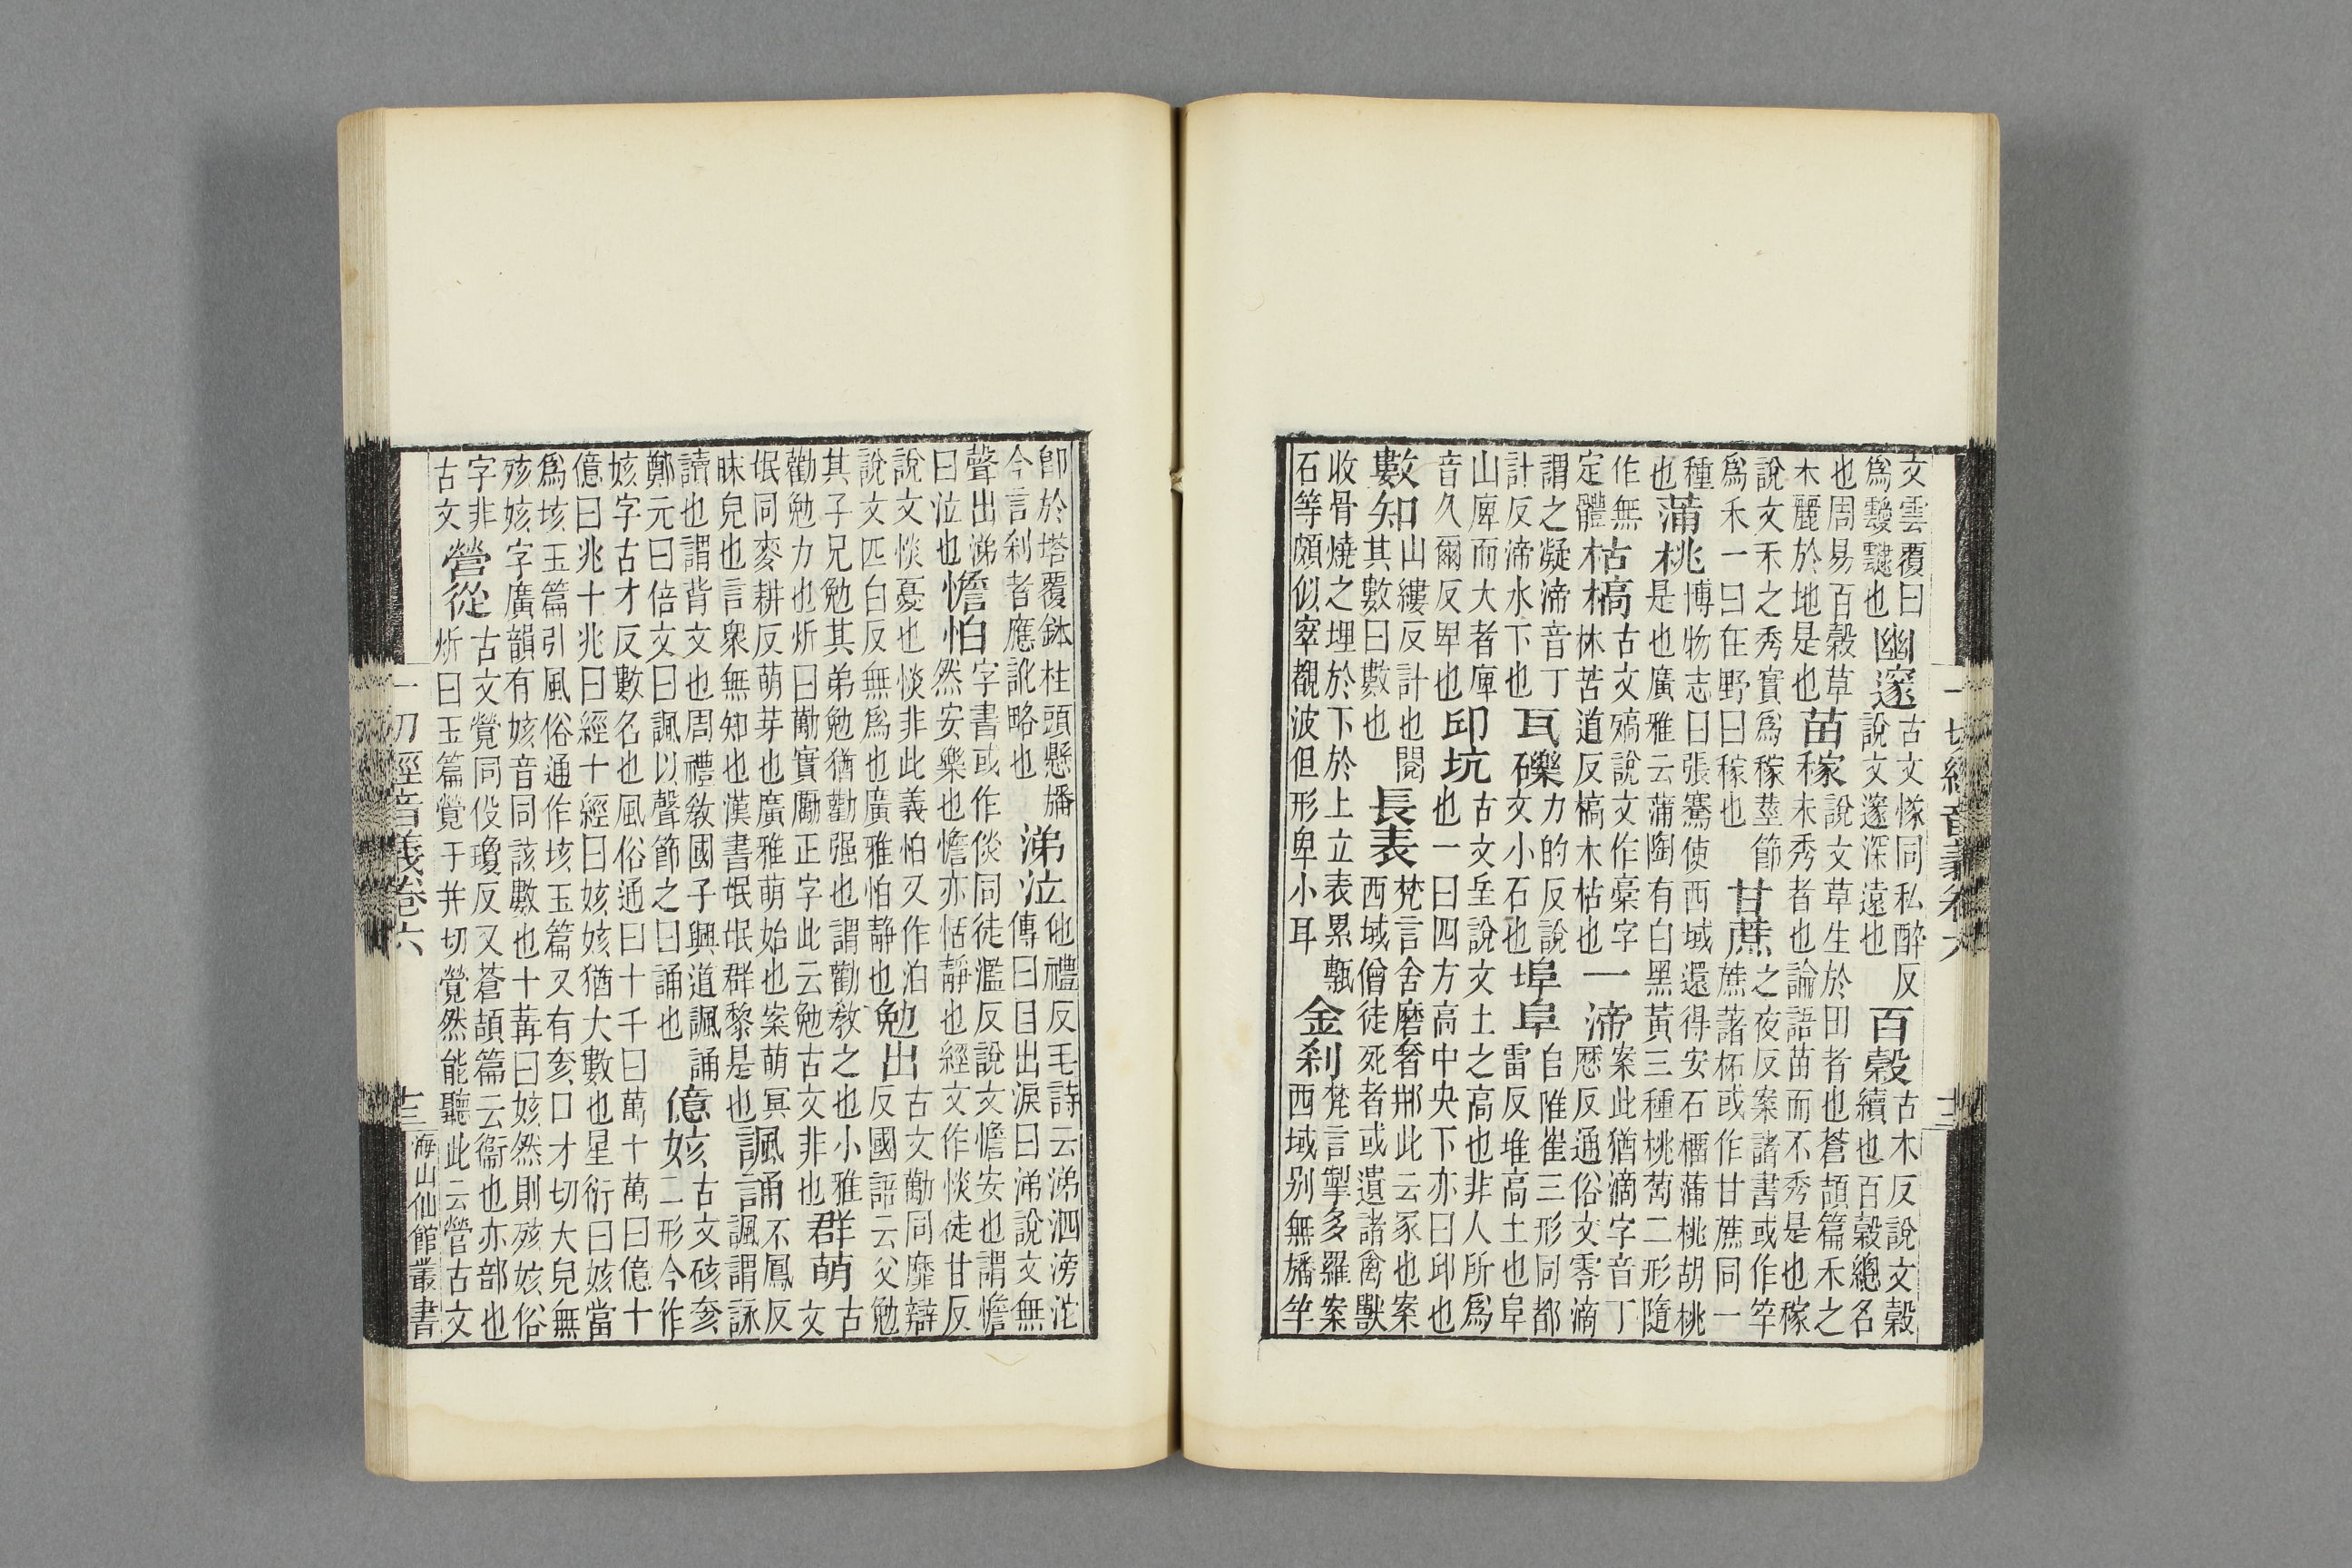 文雲覆曰爲靉靆也幽邃古文㒸同私醉反說文邃深遠也百穀古木反說文穀續也百穀總名
也周易百穀草木麗於地是也苗稼說文草生於田者也蒼頡篇禾之未秀者也論語苗而不秀是也稼
說文禾之秀實爲稼莖節爲禾一曰在野曰稼也甘蔗之夜反案諸書或作竿蔗藷柘或作甘蔗同一
種也蒲桃博物志曰張騫使西域還得安石榴蒲桃胡桃是也廣雅云蒲陶有白黑黃三種桃萄二形隨
作無定體枯槁古文殦說文作槀字苦道反槁木枯也一渧案此猶滴字音丁歷反通俗文零滴
謂之凝渧音丁計反渧水下也瓦礫力的反說文小石也埠阜𠂤陮崔三形同都雷反堆高土也阜
山庳而大者庳音久爾反卑也邱坑古文坓說文土之高也非人所爲也一曰四方高中央下亦曰邱也
數知山縷反計也閱其數曰數也長表梵言舍磨奢那此云冢也案西域僧徒死者或遺諸禽獸
收骨燒之埋於下於上立表累甎石等頗似窣覩波但形卑小耳金刹梵言掣多羅案西域別無旛竿
一切經音義卷六
十二
卽於塔覆鉢柱頭懸旛今言刹者應訛略也涕泣他禮反毛詩云涕泗滂沱傳曰目出淚曰涕說文無
聲出涕曰泣也憺怕字書或作倓同徒濫反說文憺安也謂憺然安樂也憺亦恬靜也經文作惔徒甘反
說文惔憂也惔非此義怕又作泊說文匹白反無爲也廣雅怕靜也勉出古文勱同靡辯反國語云父勉
其子兄勉其弟勉猶勸强也謂勸教之也小雅勸勉力也炘曰勱實勵正字此云勉古文非也群萌古文
氓同麥耕反萌芽也廣雅萌始也案萌冥昧皃也言衆無知也漢書氓氓群黎是也諷誦不鳳反諷謂詠
讀也謂背文也周禮敎國子興道諷誦鄭元曰倍文曰諷以聲節之曰誦也億姟古文䂤奒二形今作
姟字古才反數名也風俗通曰十千曰萬十萬曰億十億曰兆十兆曰經十經曰姟姟猶大數也星衍曰姟當
爲垓玉篇引風俗通作垓玉篇又有奒口才切大皃無㱾姟字廣韻有姟音同該數也十冓曰姟然則㱾姟俗
字非古文營從古文覮同役瓊反又蒼頡篇云衞也亦部也炘曰玉篇覮于幷切覮然能聽此云營古文
一切經音義卷六
十三
海山仙館叢書